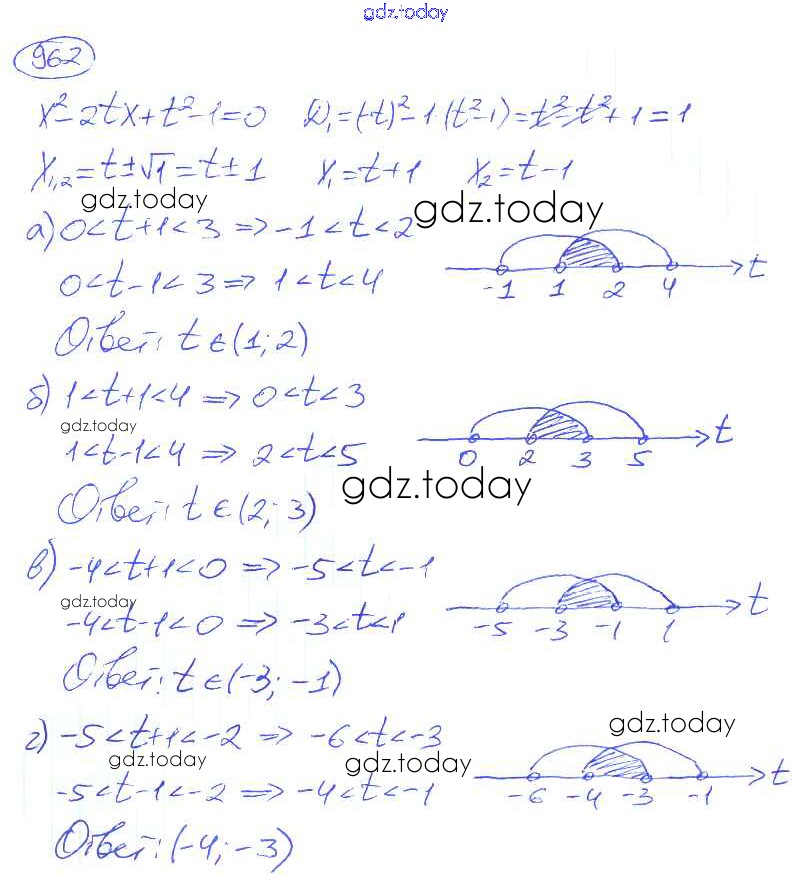 gdz.today
962
x² - 2tx + t² - 1 = 0   D₁ = (-t)² - 1·(t² - 1) = t² - t² + 1 = 1
x₁,₂ = t ± √1 = t ± 1   x₁ = t + 1   x₂ = t - 1
gdz.today gdz.today
а) 0 < t + 1 < 3 => -1 < t < 2
0 < t - 1 < 3 => 1 < t < 4
-1 1 2 4 t
Ответ: t ∈ (1; 2)
б) 1 < t + 1 < 4 => 0 < t < 3
gdz.today
1 < t - 1 < 4 => 2 < t < 5
0 2 3 5 t
gdz.today
Ответ: t ∈ (2; 3)
в) -4 < t + 1 < 0 => -5 < t < -1
gdz.today
-4 < t - 1 < 0 => -3 < t < 1
-5 -3 -1 1 t
Ответ: t ∈ (-3; -1)
г) -5 < t + 1 < -2 => -6 < t < -3
gdz.today
gdz.today gdz.today
-5 < t - 1 < -2 => -4 < t < -1
-6 -4 -3 -1 t
Ответ: (-4; -3)